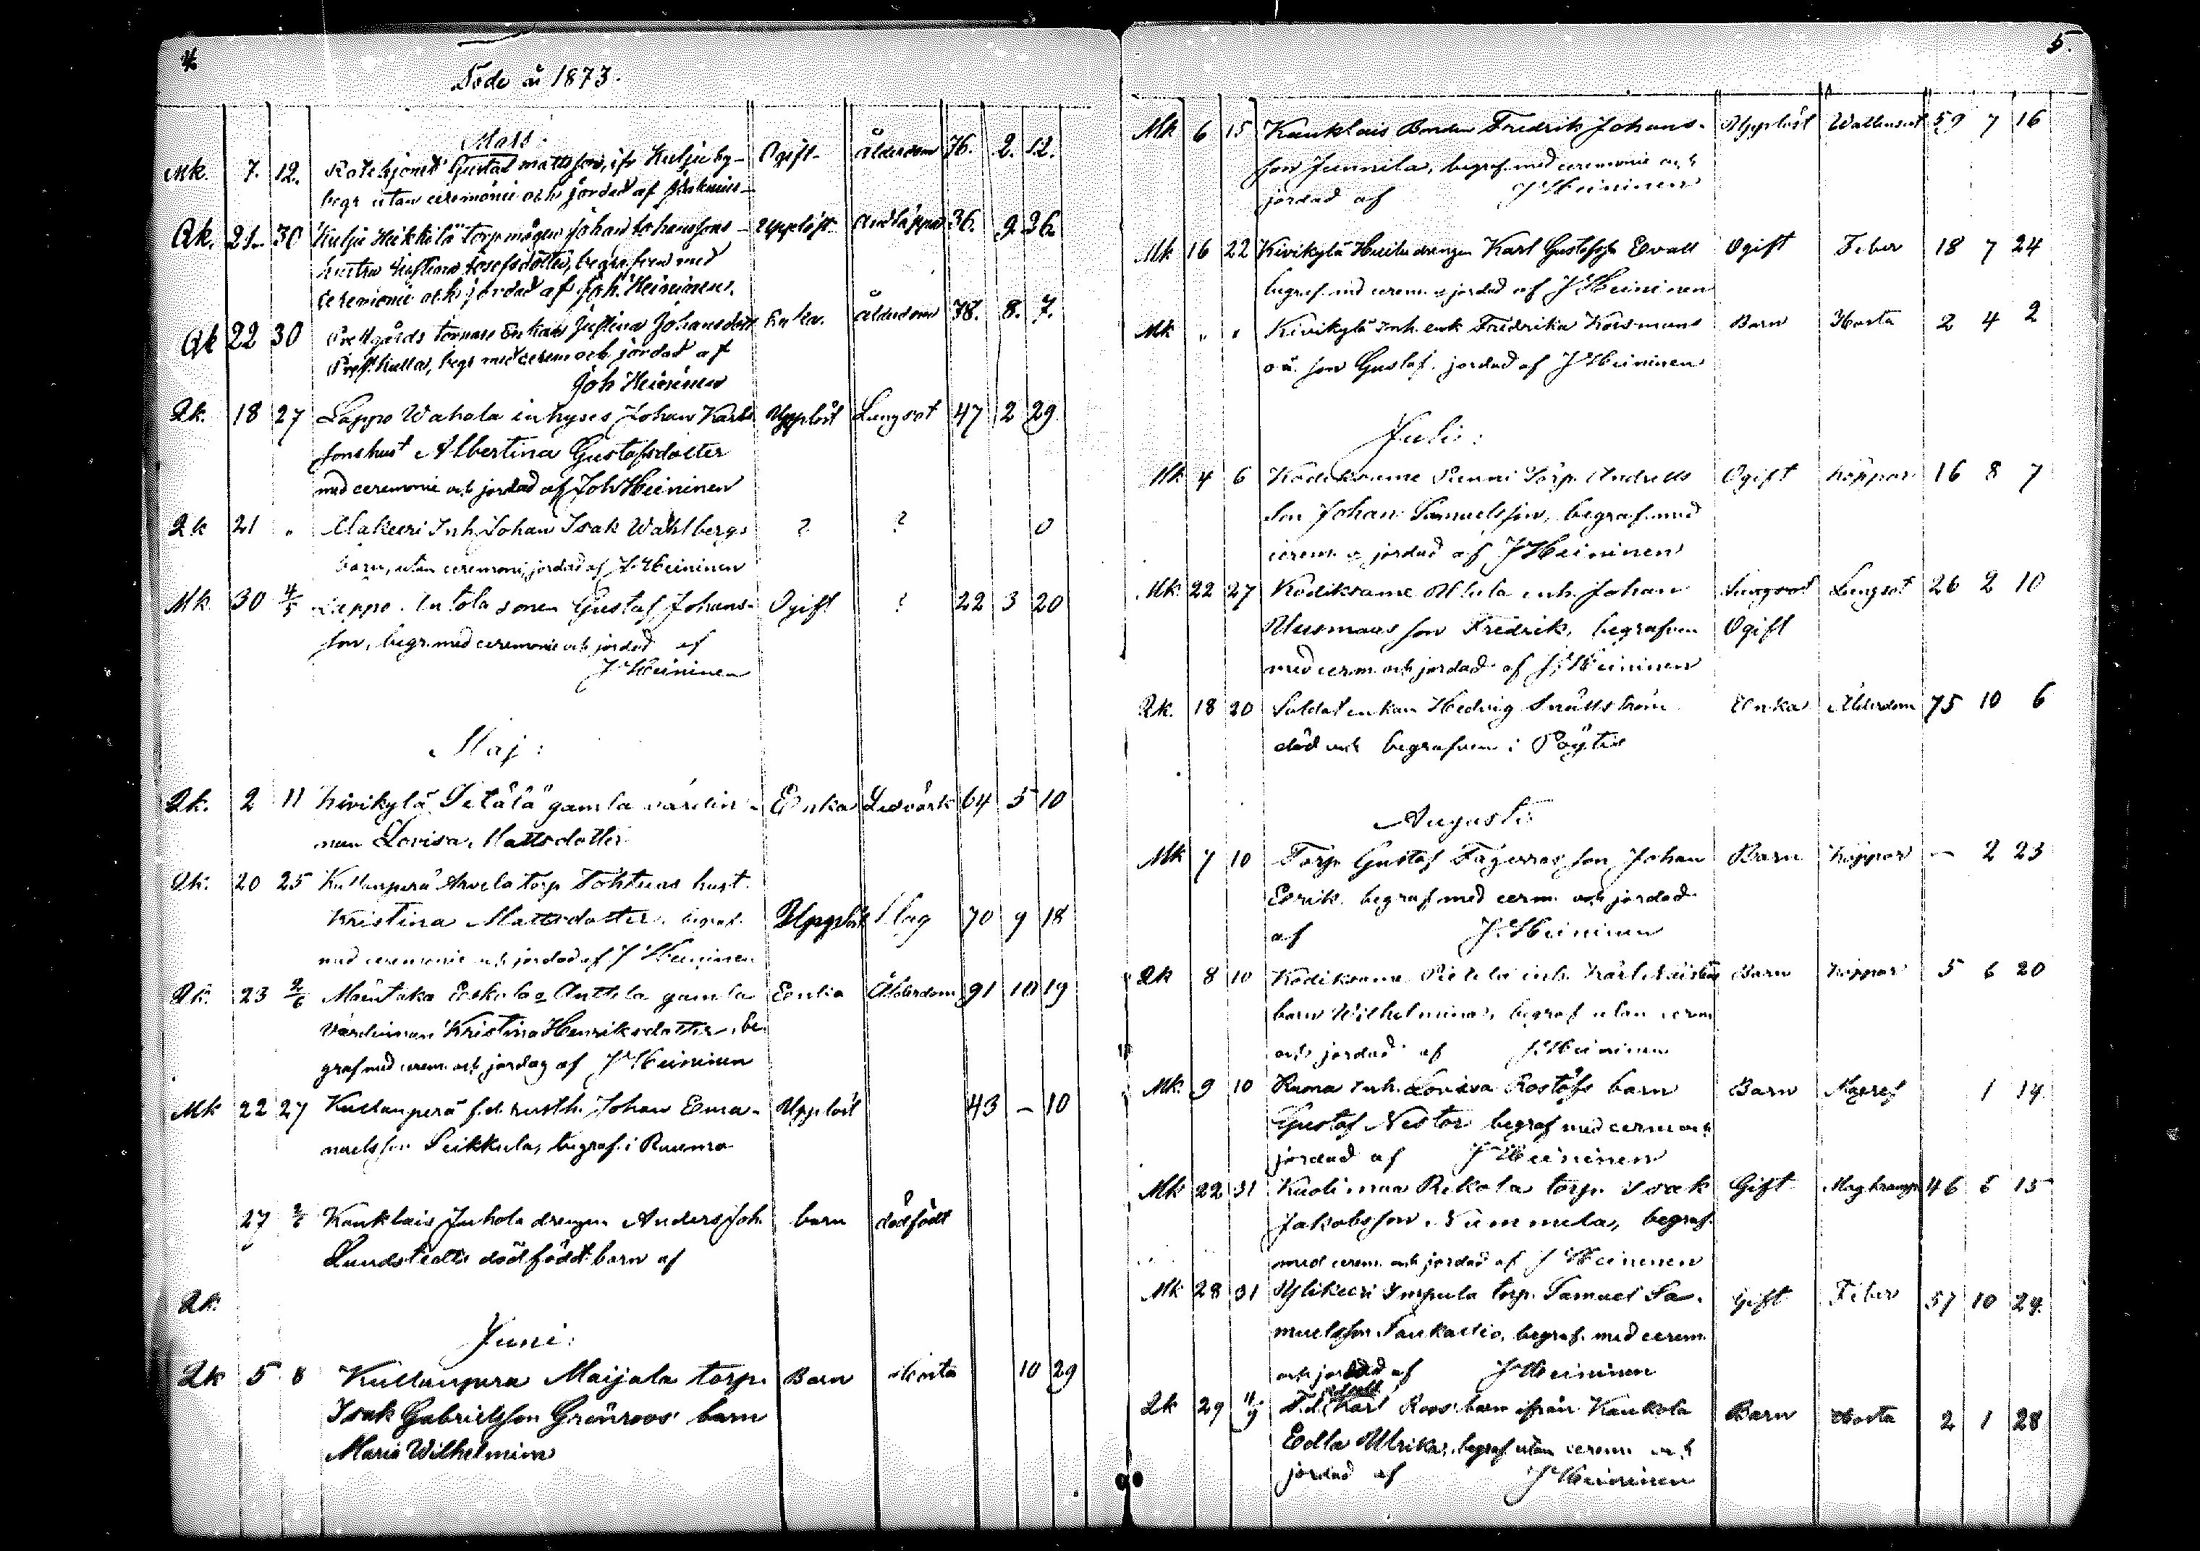 4
Döde år 1873.
Mars:
Mk. 7. 12. Gustaf Mattsson, ifr Kulju by- Ogift- ålderdom 76. 2. 12.
begr utan ceremonie och jordad af
Qk. 21. 30 Kulju Heikkilä torp mågen Johan Johanssons Upplöst 36. 9. 26.
hustru Justina Josefsdotter, begrafven med
ceremonie och jordad af Joh. Heininen.
Qk 22 30 Prestgårds Enkan Justina Johansdott Enka. ålderdom 78. 8. 7.
begr med cerem och jordad af
Joh Heininen
Qk. 18 27 Lappo Wahala inhyses Johan Karls Upplöst Lungsot 47 2 29
sons hust Albertina Gustafsdotter
med ceremonie och jordad af Joh Heininen
Qk 21 " Alakieri Inh. Johan Isak Wahlbergs ? ? 0
barn, utan ceremoni, jordad af J. Heininen
Mk 30 4/5 Lappo Intola sonen Gustaf Johans- Ogift ? 22 3 20
son, begr. med ceremonie och jordad af
J Heininen
Maj:
Qk. 2 11 Kivikylä Setälä gamla värdin- Enka Ledvärk 64 5 10
nan Lovisa Mattsdotter
Qk. 20 25 Kullanperä Arvela torp Tohturs hust.
Kristina Mattsdotter. begraf. Upplöst Slag 70 9 18
med ceremonie och jordad af J Heininen
Qk. 23 2/6 Mäentaka Eskola Anttila gamla Enka Ålderdom 91 10 19
värdinnan Kristina Henriksdotter, be-
graf med cerem. och jordag af J Heininen
Mk 22 27 Kullanperä f.d. rusth. Johan Ema- Upplöst 43 – 10
nuelsson Seikkula, begraf. i Raumo
27 2/6 Kauklais Juhola drengen Anders Joh. barn dödfödt
Lundstedts dödfödt barn af
Qk.
Juni:
Qk 5 8 Kullanpera Maijala torp. Barn Hosta 10 29
Isak Gabrielsson Grönroos barn
Maria Wilhelmina
5.
Mk 6 15 Kauklais Bonden Fredrik Johans- Upplöst Wattensot 59 7 16
son Junnila, begraf. med ceremonie och
jordad af J Heininen
Mk 16 22 Kivikylä drengen Karl Gustafsson Evall Ogift Feber 18 7 24
begraf. med cerem. o jordad af J Heininen
Mk " " Kivikylä inh. enk Fredrika Korsmans Barn Hosta 2 4 2
o.ä. son Gustaf. jordad af J Heininen
Juli:
Mk 4 6 Kodiksame Torp. Anders Ogift Koppor 16 8 7
son Johan Samuelsson, begraf. med
cerem. o jordad af J Heininen
Mk. 22 27 Kodiksame Uhla inh. Johan Lungsot Lungsot 26 2 10
Uusmans son Fredrik, begrafven Ogift
med cerem. och jordad af J. Heininen
Qk. 18 20 Soldat enkan Hedvig Enka Ålderdom 75 10 6
död och begrafven i Pöytis
Augusti:
Mk 7 10 Torp. Gustaf Fagerros son Johan Barn Koppor – 2 23
Eerik. begraf med cerm. och jordad
af J. Heininen
Qk 8 10 Kodiksame inh. Karl Barn Koppor 5 6 20
barn Wilhelmina, begraf utan cerem
och jordad af J. Heininen
Mk. 9 10 Inh. Lovisa barn Barn Magref 1 19.
Gustaf Nestor begraf med cerem och
jordad af J Heininen
Mk 22 31 Kuolimaa Rikola torp. Isak Gift Magkramp 46 6 15
Jakobsson Nummela, begraf.
med cerem. och jordad af J Heininen
Mk 28 31 Ylikieri Impola torp. Samuel Sa- Gift Feber 57 10 29.
muelsson, begraf. med cerem.
och jordad af J Heininen
Qk 29 11/9 F.d. Karl Roos barn ifrån Kaukola Barn Hosta 2 1 28
Edla Ulrika, begraf utan cerem. och
jordad af J Heininen